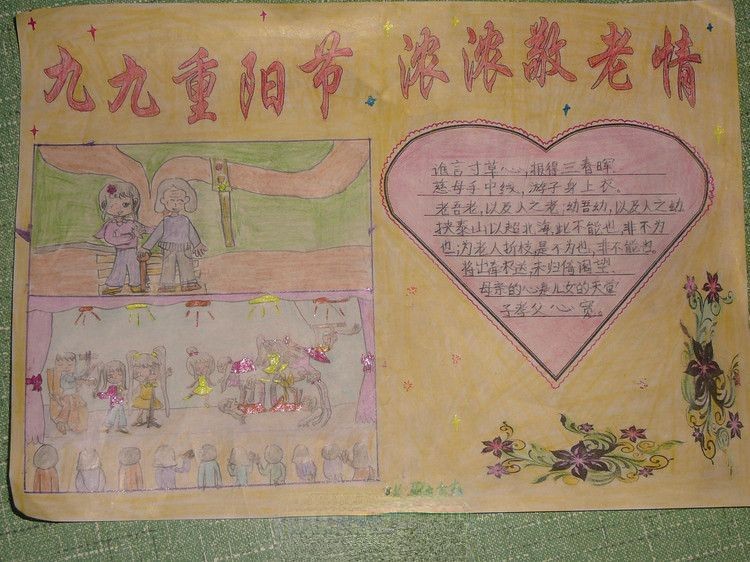 九九重阳节 浓浓敬老情
谁言寸草心,报得三春晖
慈母手中线,游子身上衣。
老吾老,以及人之老;幼吾幼,以及人之幼.
挟泰山以超北海,此不能也,非不为
也;为老人折枝,是不为也,非不能也。
将出牵不送,未归倚阁望.
母亲的心是儿女的天堂
子孝父心宽。